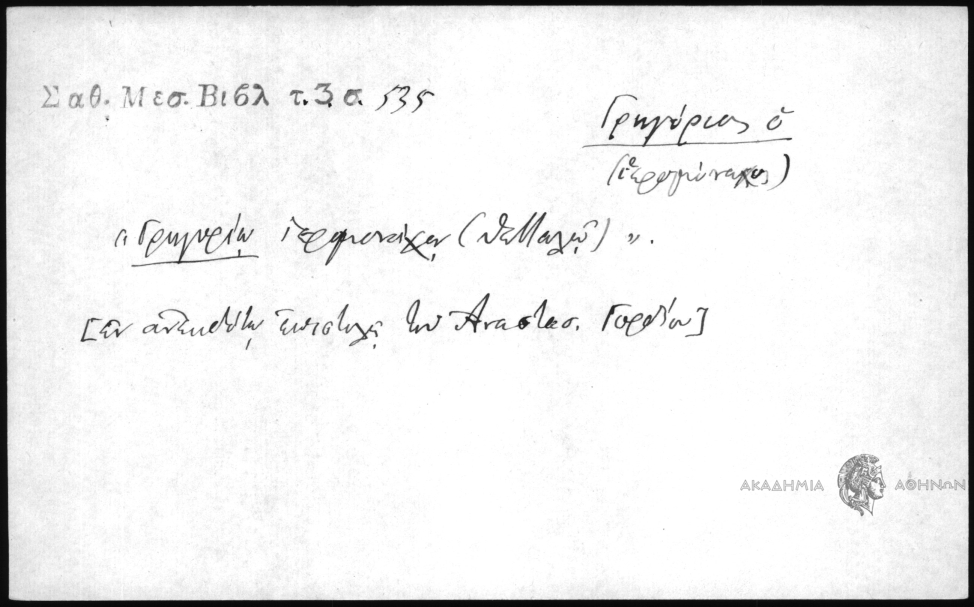 Σαθ. Μεσ. Βιβλ τ. 3. σ. 535
Γρηγόριος ὁ
(ἱερομόναχος)
"Γρηγορίῳ ἱερομονάχῳ ( ) ".
[ἐν ἀνεκδότῳ ἐπιστολῇ τοῦ Ἀναστασ. Γορδίου]
ΑΚΑΔΗΜΙΑ ΑΘΗΝΩΝ